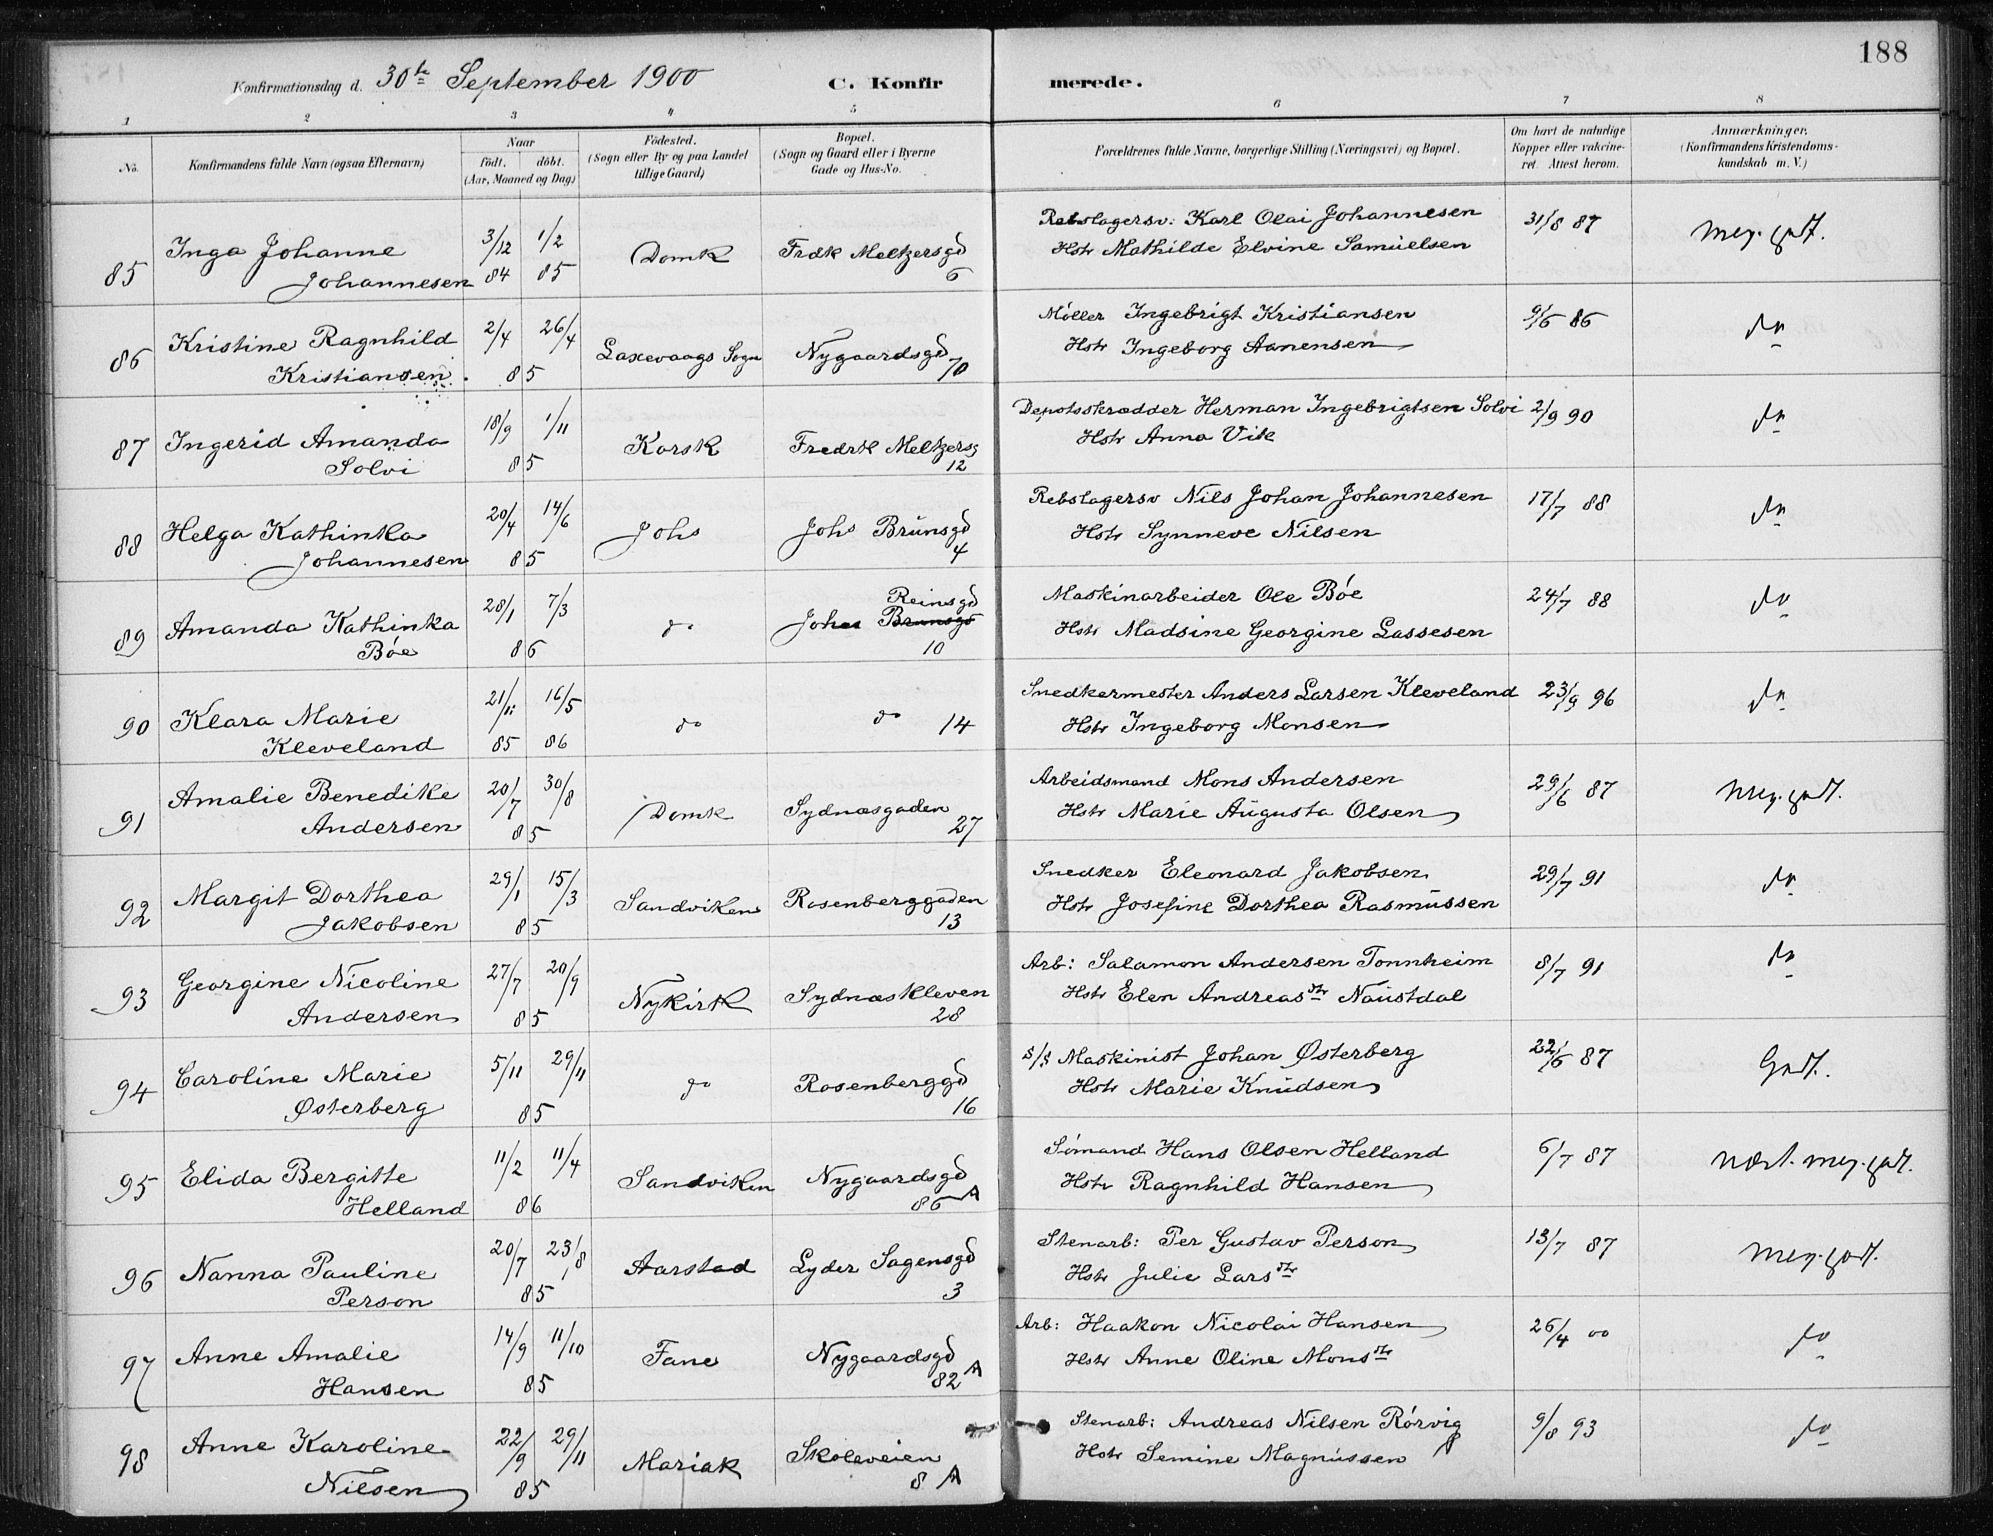 188
Konfirmationsdag d. 30te September 1900 C. Konfirmerede.
1 2 3 4 5 6 7 8
No. Konfirmandens fulde Navn (ogsaa Efternavn) Naar født. døbt. (Aar, Maaned og Dag) Fødested. (Sogn eller By og paa Landet tillige Gaard) Bopæl. (Sogn og Gaard eller i Byerne Gade og Hus-No. Forældrenes fulde Navne, borgerlige Stilling (Næringsvei) og Bopæl. Om havt de naturlige Kopper eller vakcineret. Attest herom. Anmærkninger. (Konfirmandens Kristendomskundskab m. V.)
85 Inga Johanne Johannesen 3/12 84 1/2 85 Domk Fredk Meltzersgd 6 Rebslagersv: Karl Olai Johannesen 31/8 87 Meg. godt.
Hstr Mathilde Elvine Samuelsen
86 Kristine Ragnhild Kristiansen. 2/4 26/4 85 Laxevaags Sogn Nygaardsgd 70 Møller Ingebrigt Kristiansen 9/6 86 do
Hstr Ingeborg Aanensen
87 Ingerid Amanda Solvi 18/9 1/11 85 Korsk Fredrk Meltzersg 12 Depotsskrædder Herman Ingebrigtsen Solvi 2/9 90 do
Hstr Anna Vik
88 Helga Kathinka Johannesen 20/4 14/6 85 Johs Johs Brunsgd 4 Rebslagersv Nils Johan Johannesen 17/7 88 do
Hstr Synneve Nilsen
89 Amanda Kathinka Bøe 28/1 7/3 86 do Johs Brunsgd Reinsgd 10 Maskinarbeider Ole Bøe 24/7 88 do
Hstr Madsine Georgine Lassesen
90 Klara Marie Kleveland 21/11 85 16/5 86 do do 14 Snedkermester Anders Larsen Kleveland 23/9 96 do
Hstr Ingeborg Monsen
91 Amalie Benedike Andersen 20/7 30/8 85 Domk Sydnæsgaden 27 Arbeidsmand Mons Andersen 29/6 87 Meg. godt.
Hstr Marie Augusta Olsen
92 Margit Dorthea Jakobsen 29/1 15/3 85 Sandviken Rosenberggaden 13 Snedker Eleonard Jakobsen 29/7 91 do
Hstr Josefine Dorthea Rasmussen
93 Georgine Nicoline Andersen 27/7 20/9 85 Nykirk Sydnæskleven 28 Arb: Salamon Andersen Tonnheim 8/7 91 do
Hstr Elen Andreasdtr Naustdal
94 Caroline Marie Østerberg 5/11 29/11 85 do Rosenberggd 16 S/S Maskinist Johan Østerberg 22/6 87 Godt.
Hstr Marie Knudsen
95 Elida Bergitte Helland 11/2 11/4 86 Sandviken Nygaardsgd 86 A Sømand Hans Olsen Helland 6/7 87 Næst. meg. godt.
Hstr Ragnhild Hansen
96 Nanna Pauline Person 20/7 23/8 85 Aarstad Lyder Sagensgd 3 Stenarb: Per Gustav Person 13/7 87 Meg. godt.
Hstr Julie Larsdtr
97 Anne Amalie Hansen 14/9 11/10 85 Fane Nygaardsgd 82 A Arb: Haakon Nicolai Hansen 26/4 00 do
Hstr Anne Oline Monsdtr
98 Anne Karoline Nilsen 22/9 29/11 85 Mariak Skoleveien 8 A Stenarb: Andreas Nilsen Rørvig 9/8 93 do
Hstr Semine Magnussen